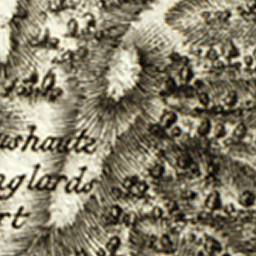 ushautz
nglards
rt